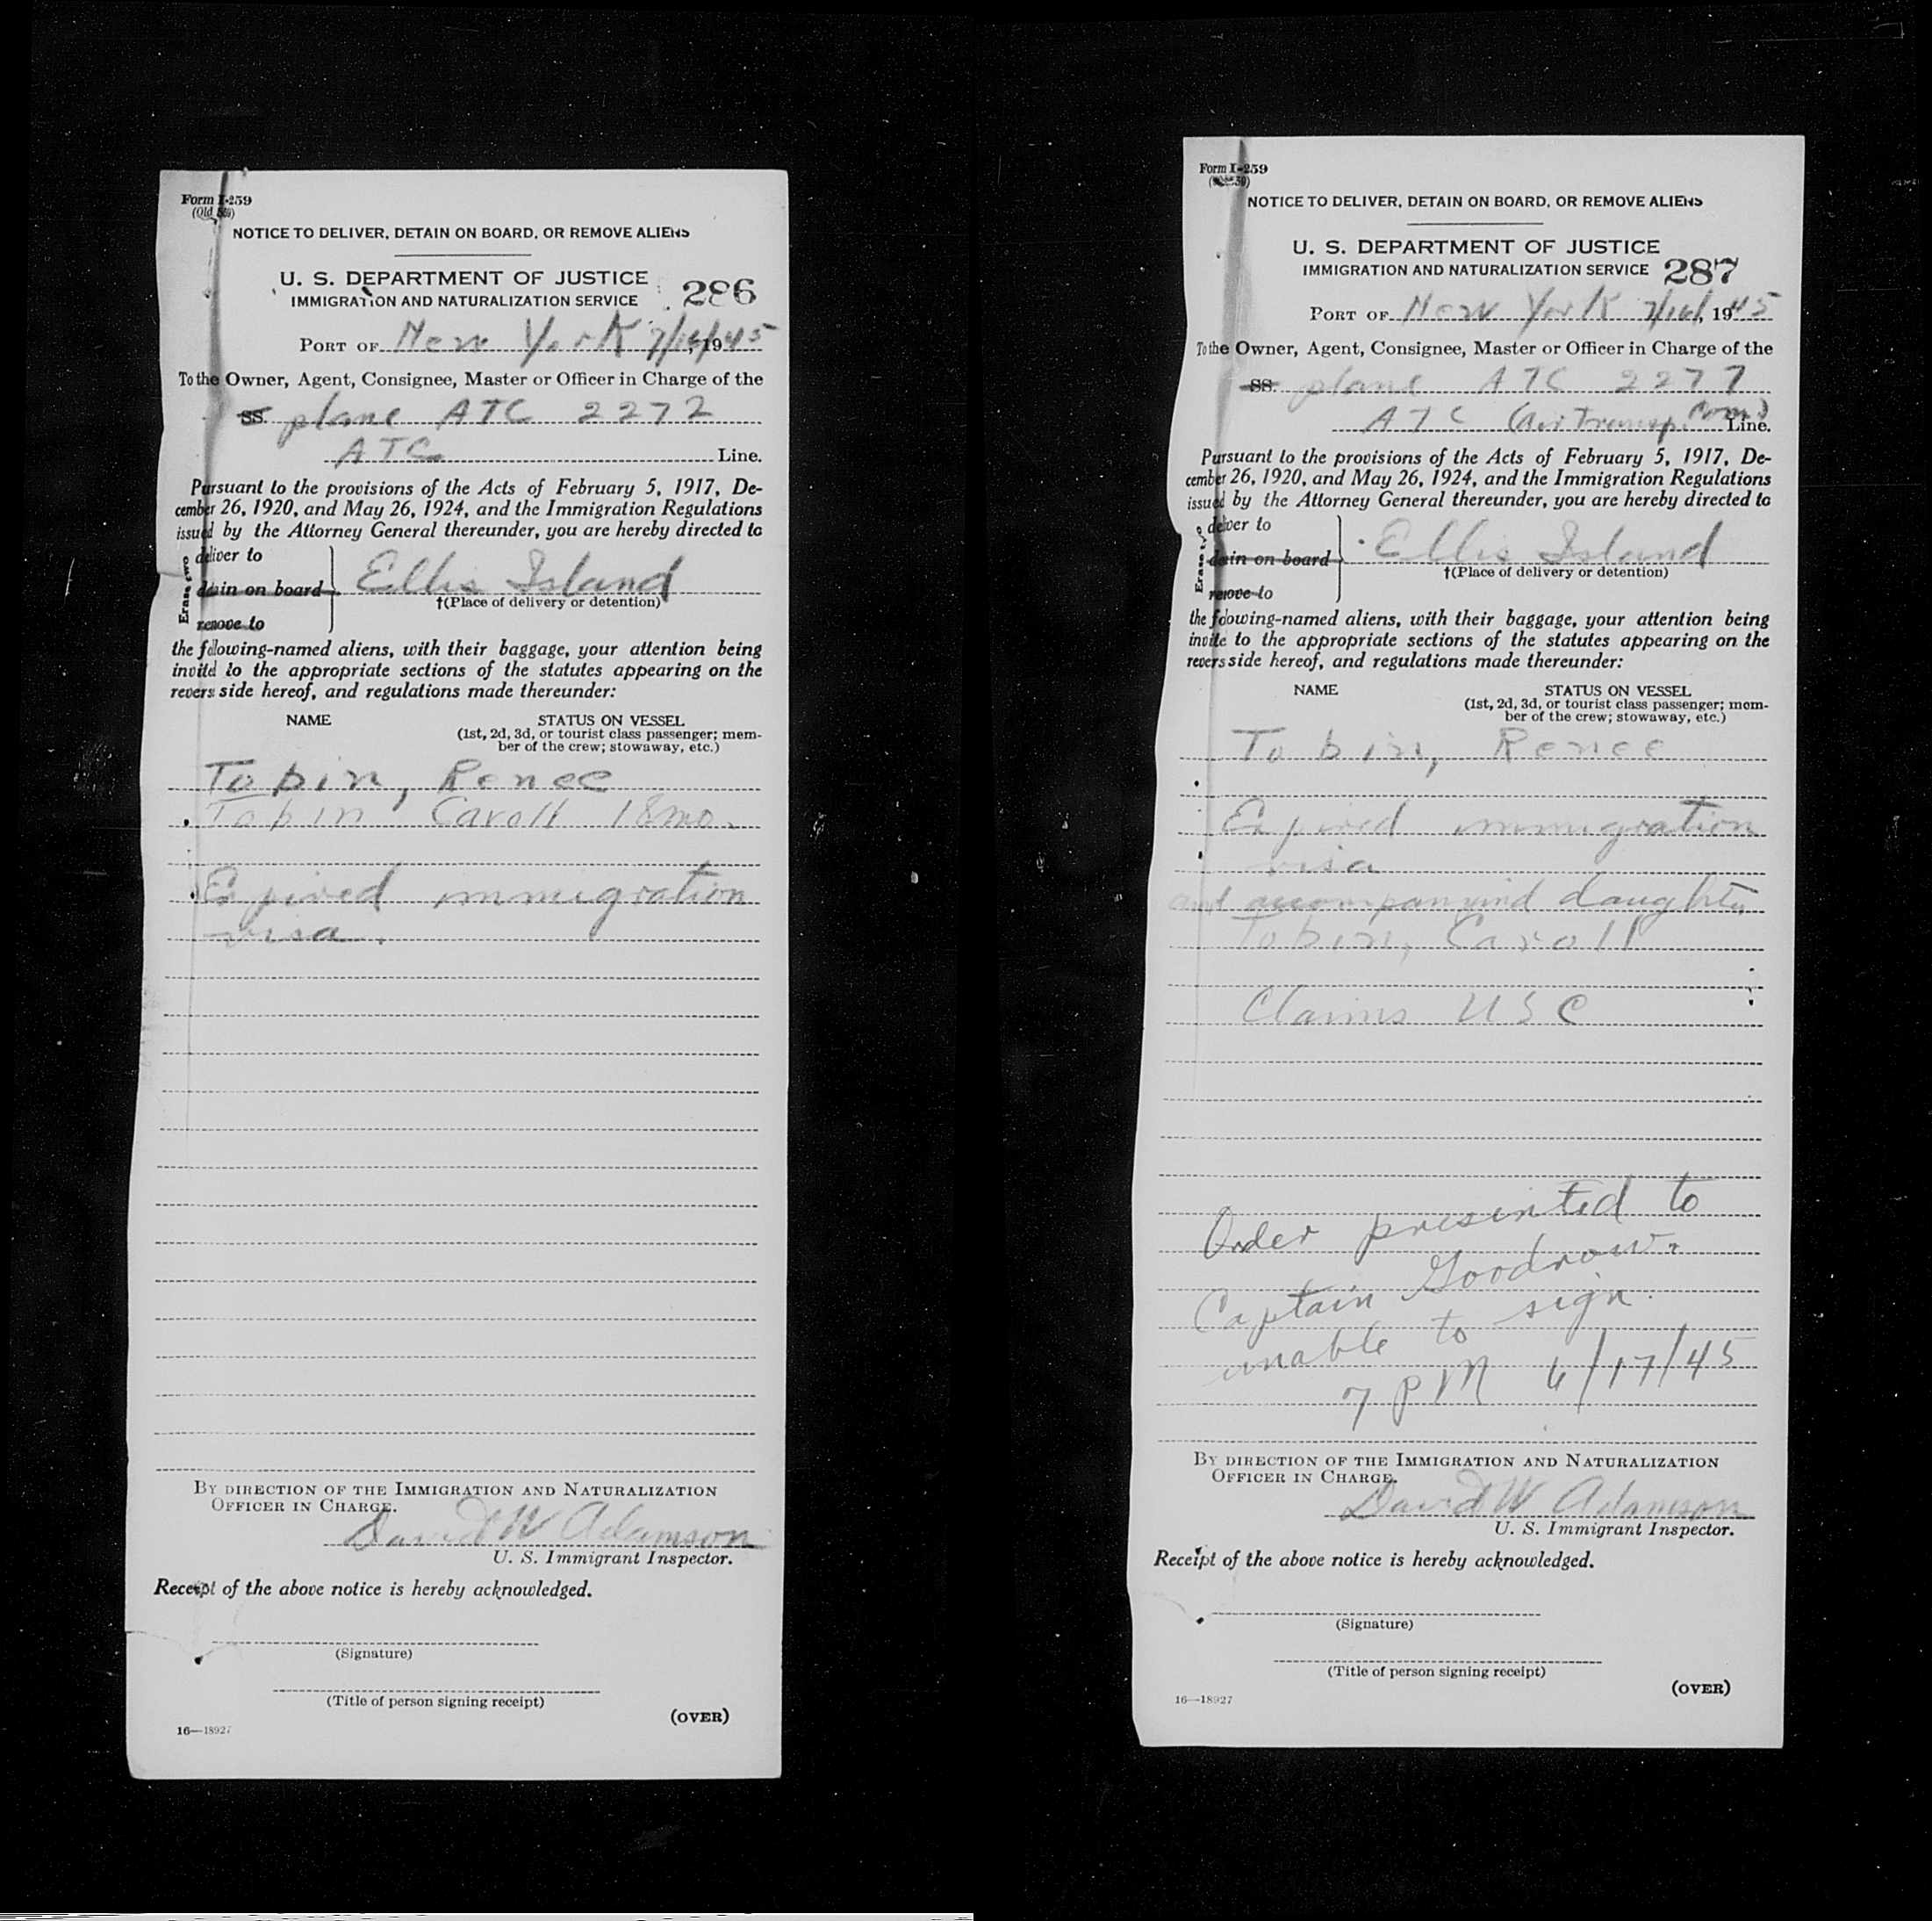 Form I-259
(Old 5
NOTICE TO DELIVER, DETAIN ON BOARD, OR REMOVE ALIENS
U. S. DEPARTMENT OF JUSTICE
IMMIGRATION AND NATURALIZATION SERVICE 286
PORT OF New York 7/16/, 1945
To the Owner, Agent, Consignee, Master or Officer in Charge of the
SS. plane ATC 2272
ATC Line.
Pursuant to the provisions of the Acts of February 5, 1917, De-
cember 26, 1920, and May 26, 1924, and the Immigration Regulations
issued by the Attorney General thereunder, you are hereby directed to
Erase two
deliver to
detain on board
remove to
Ellis Island
†(Place of delivery or detention)
the following-named aliens, with their baggage, your attention being
invited to the appropriate sections of the statutes appearing on the
reverse side hereof, and regulations made thereunder:
NAME STATUS ON VESSEL
(1st, 2d, 3d, or tourist class passenger; mem-
ber of the crew; stowaway, etc.)
Tobin, Renee
Tobin Caroll 18 mo.
Expired immigration
visa.
BY DIRECTION OF THE IMMIGRATION AND NATURALIZATION
OFFICER IN CHARGE.
David W Adamson
U. S. Immigrant Inspector.
Receipt of the above notice is hereby acknowledged.
(Signature)
(Title of person signing receipt)
(OVER)
16—18927
Form I-259
NOTICE TO DELIVER, DETAIN ON BOARD, OR REMOVE ALIENS
U. S. DEPARTMENT OF JUSTICE
IMMIGRATION AND NATURALIZATION SERVICE 287
PORT OF New York 7/16/, 1945
To the Owner, Agent, Consignee, Master or Officer in Charge of the
SS. plane ATC 2277
ATC (Air Transp. Com.) Line.
Pursuant to the provisions of the Acts of February 5, 1917, De-
cember 26, 1920, and May 26, 1924, and the Immigration Regulations
issued by the Attorney General thereunder, you are hereby directed to
Erase two
deliver to
detain on board
remove to
Ellis Island
†(Place of delivery or detention)
the following-named aliens, with their baggage, your attention being
invite to the appropriate sections of the statutes appearing on the
revers side hereof, and regulations made thereunder:
NAME STATUS ON VESSEL
(1st, 2d, 3d, or tourist class passenger; mem-
ber of the crew; stowaway, etc.)
Tobin, Renee
Expired immigration
visa
and accompanyind daughter
Tobin, Caroll
Claims USC
Order presented to
Captain Goodrow.
unable to sign.
7 PM 6/17/45
BY DIRECTION OF THE IMMIGRATION AND NATURALIZATION
OFFICER IN CHARGE.
David W Adamson
U. S. Immigrant Inspector.
Receipt of the above notice is hereby acknowledged.
(Signature)
(Title of person signing receipt)
(OVER)
16—18927